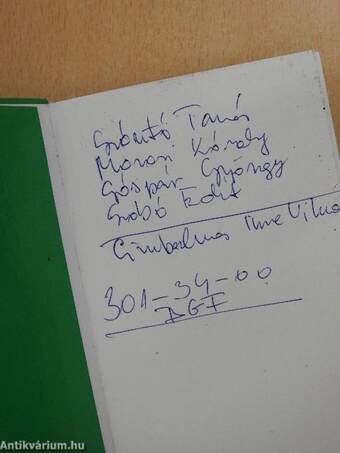 Szántó Tamás
Károly
Gáspár Gyöngy
Szabó Edit
Cimbalmos Imre Vilmos
301-34-00
DGF
Antikvárium.hu